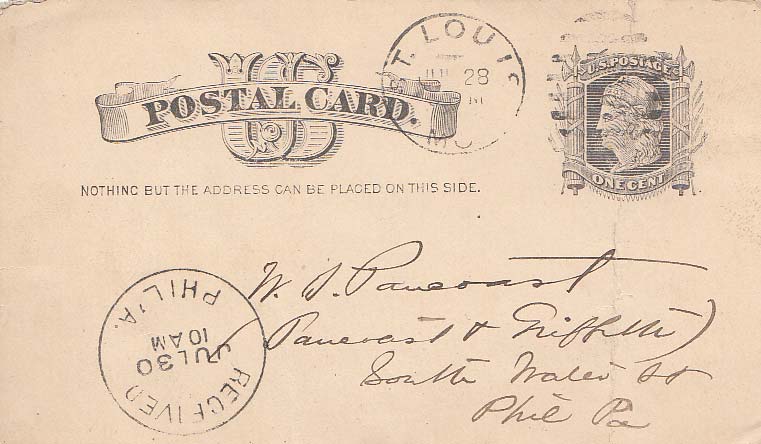 U.S. POSTAGE
ONE CENT
ST. LOUIS
28
MO
US
POSTAL CARD.
NOTHING BUT THE ADDRESS CAN BE PLACED ON THIS SIDE.
W. S. Pancoast
(Pancoast & Griffith)
South Water St
Phil Pa
RECEIVED
JUL 30
10 AM
PHIL'A.